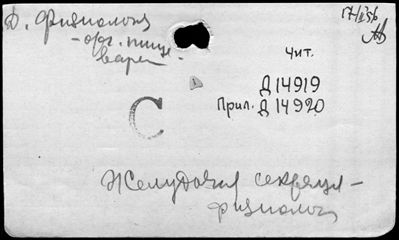 Д. Физиология
- орг. пище-
варен.
17/II 56
Чит.
Д 14919
Прил. Д 14920
С
Желудочная секреция -
физиология